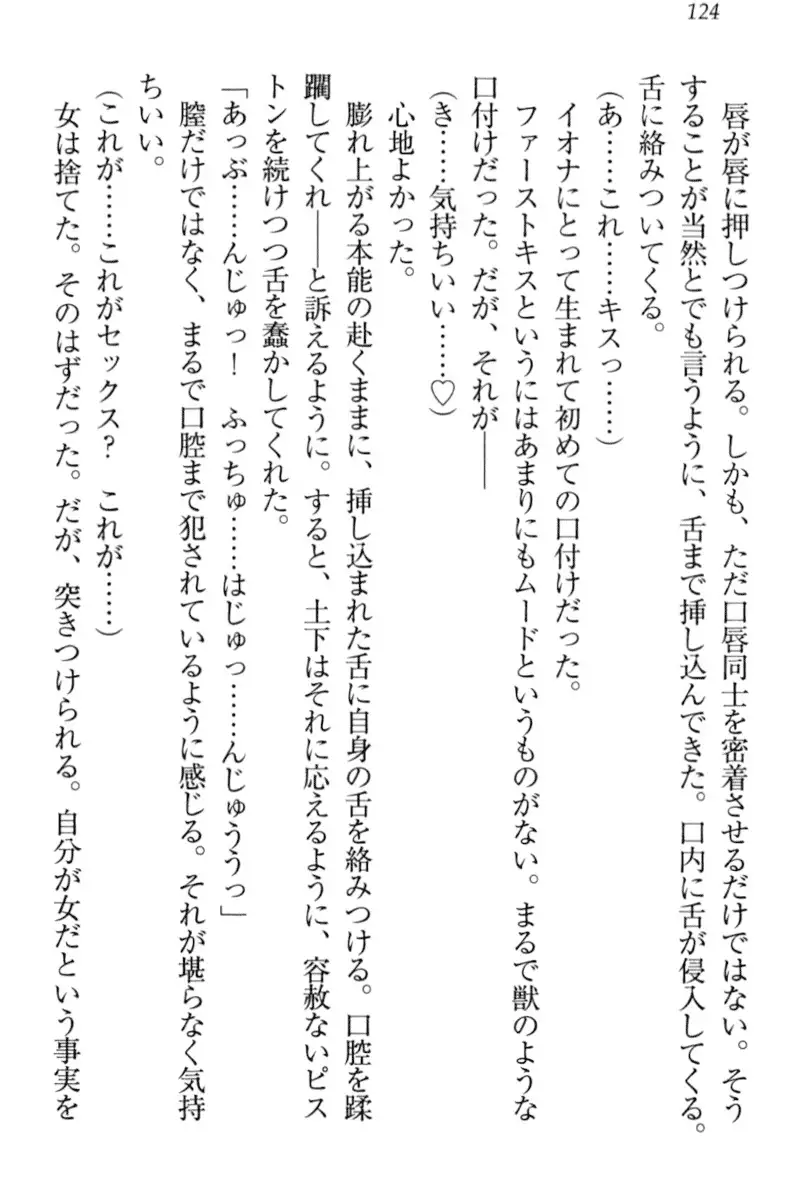 124
　唇が唇に押しつけられる。しかも、ただ口唇同士を密着させるだけではない。そう
することが当然とでも言うように、舌まで挿し込んできた。口内に舌が侵入してくる。
舌に絡みついてくる。
（あ……これ……キスっ……）
　イオナにとって生まれて初めての口付けだった。
　ファーストキスというにはあまりにもムードというものがない。まるで獣のような
口付けだった。だが、それが――
（き……気持ちいい……♡）
　心地よかった。
　膨れ上がる本能の赴くままに、挿し込まれた舌に自身の舌を絡みつける。口腔を蹂
躙してくれ――と訴えるように。すると、土下はそれに応えるように、容赦ないピス
トンを続けつつ舌を蠢かしてくれた。
「あっぶ……んじゅっ！　ふっちゅ……はじゅっ……んじゅううっ」
　膣だけではなく、まるで口腔まで犯されているように感じる。それが堪らなく気持
ちいい。
（これが……これがセックス？　これが……）
　女は捨てた。そのはずだった。だが、突きつけられる。自分が女だという事実を